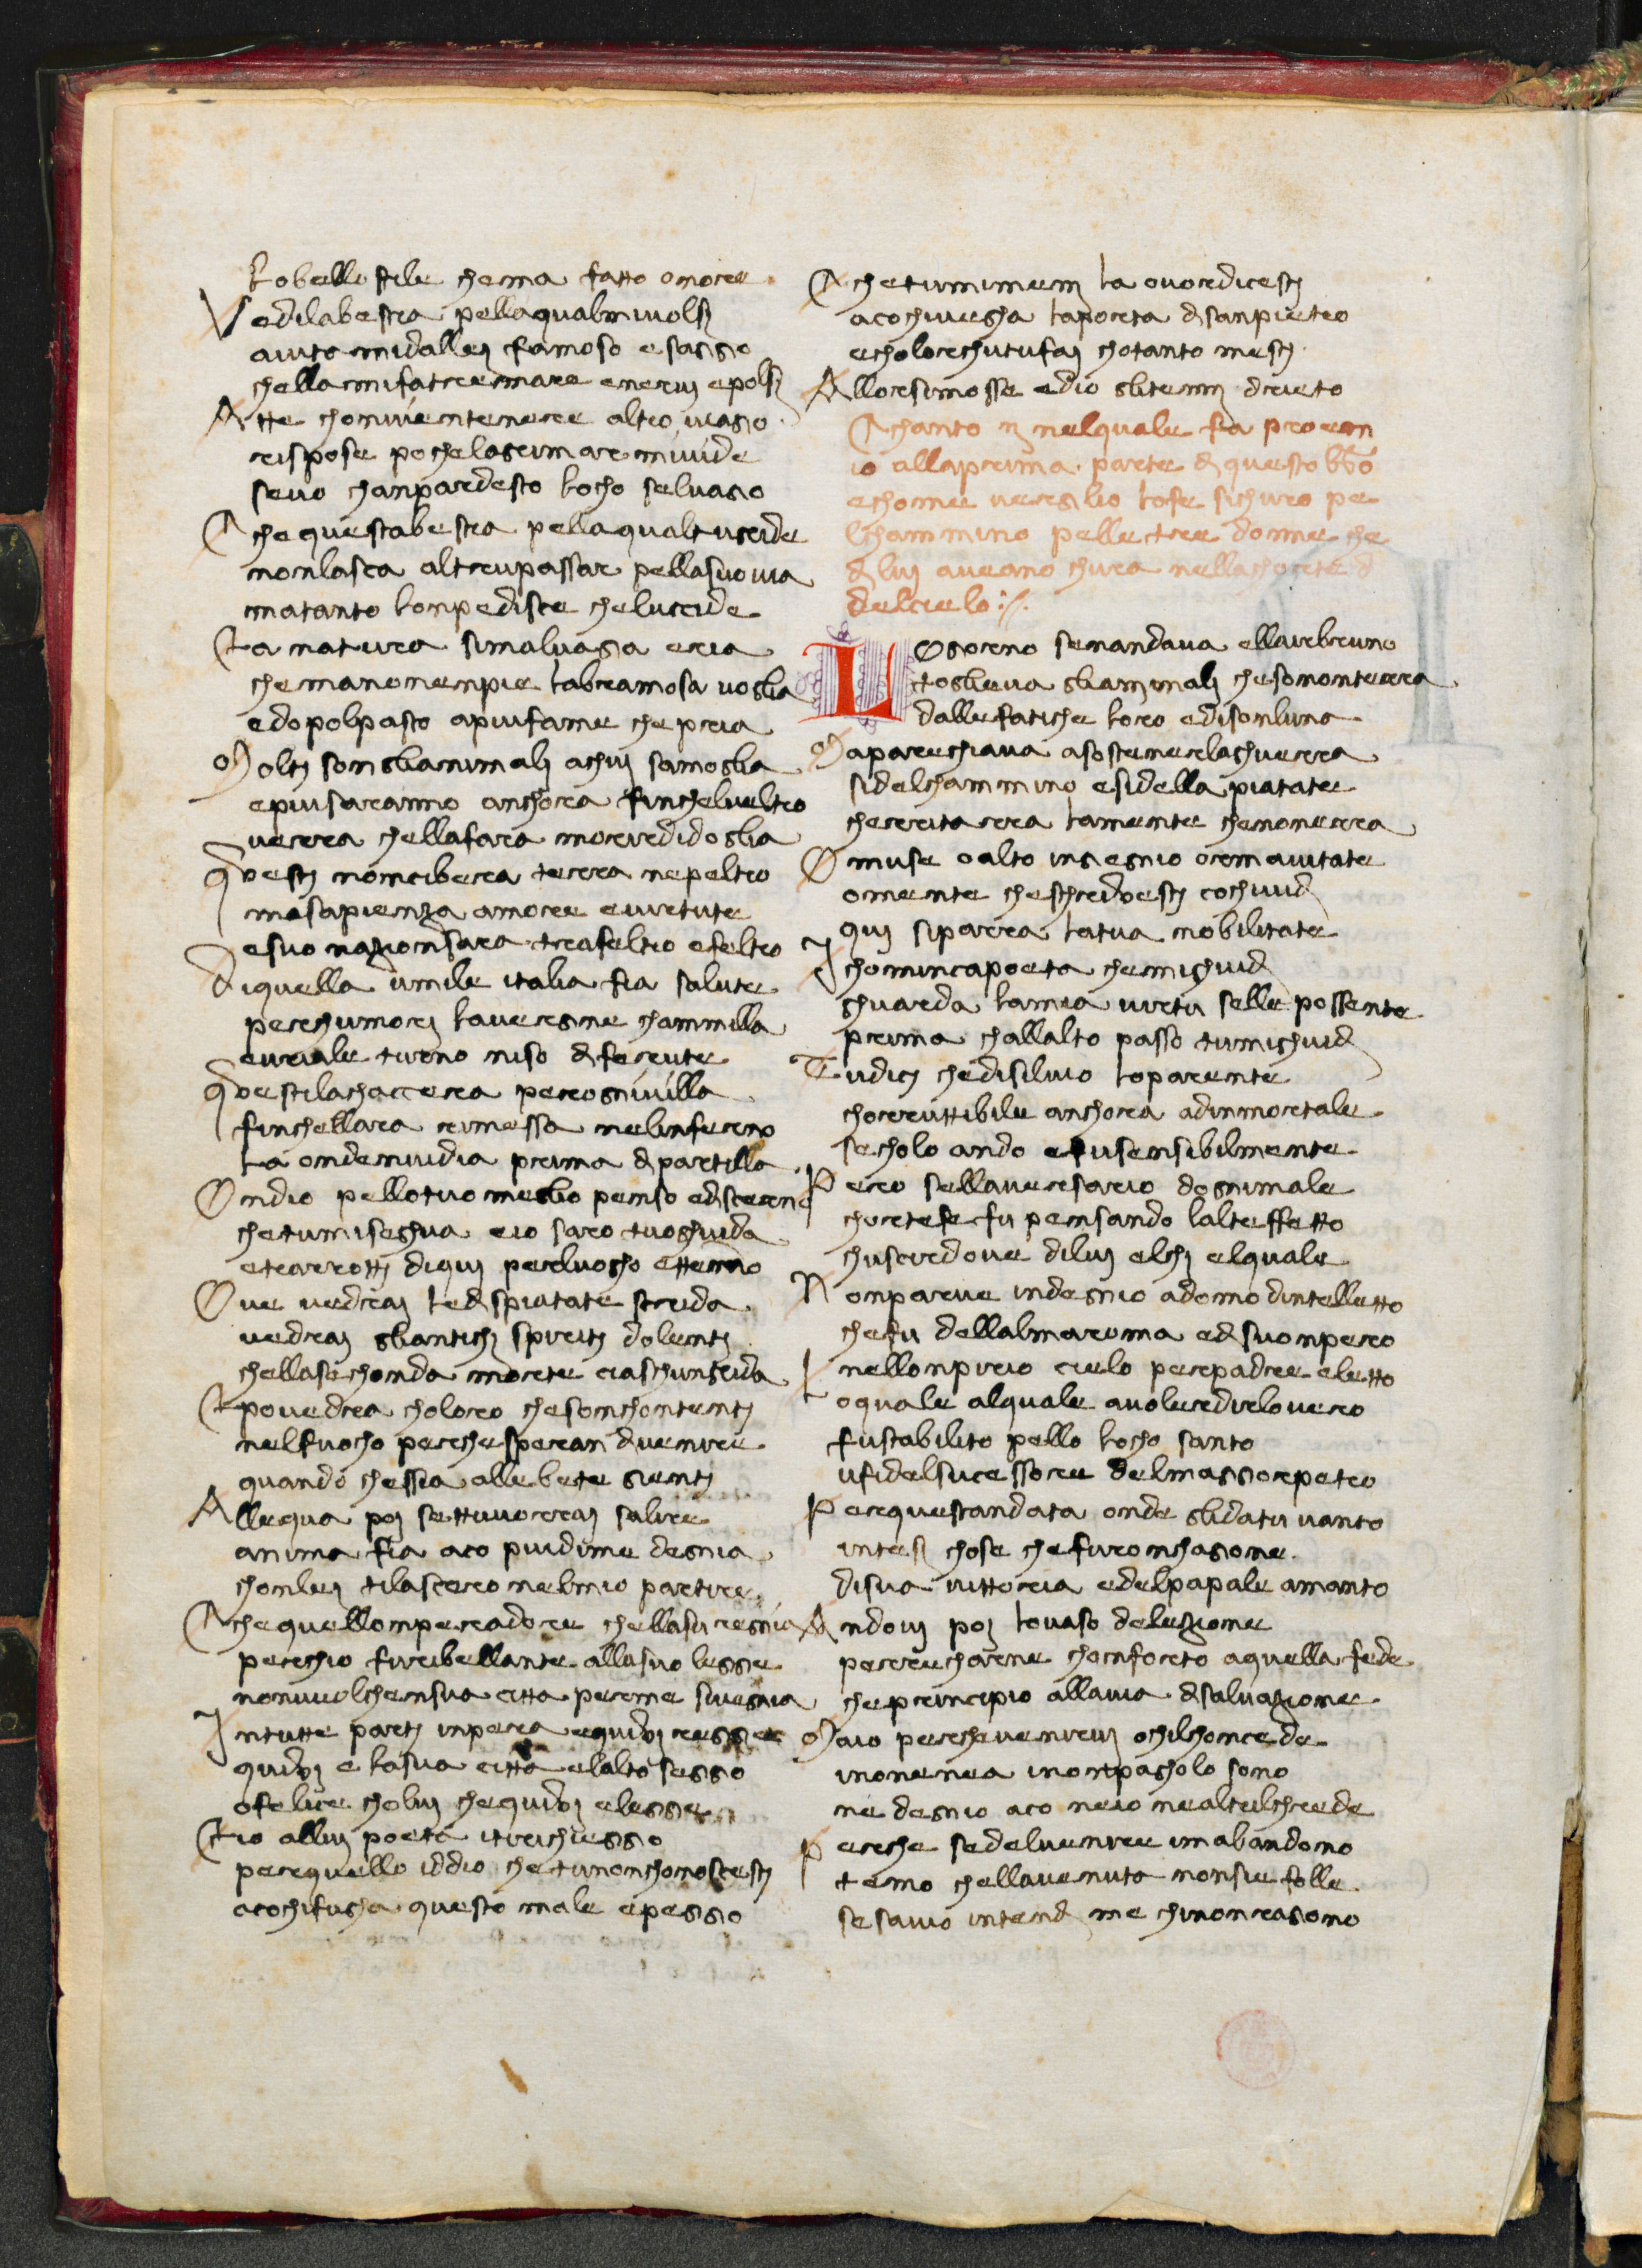 Lo bello stile chemma fatto onore
Vedilabestia pellaqualmivolsj
aiutamidallej famoso esaggo
chella mifatremare enervj epolsj
Atte chonvientenere altro viago
rispose pochelagrimaremivide
sevo chanpardesto locho selvago
Che questabestia pellaqualtugride
nonlascia altruipassar pellasuovia
matanto lonpediscie cheluccide
Ea natura simalvaga eria
chemanonenpie labramosa voglia
edopolpasto apiufame che pria
Moltj songlianimalj achuj samoglia
epiusaranno anchora finchelveltro
verra chellafara morirdidoglia
Questj noncibera terra nepeltro
masapienza amore evirtute
esuo nazionsara trafeltro efeltro
Diquella umile italia fia salute
perchumorj lavergine chammilla
eurialo turno niso di ferute
Questilachaccera perognivilla
finchellara rimessa nelonferno
La ondenvidia prima dipartilla
Ondio pellotuo meglio penso ediscerno
chetumisegua eio saro tuoghuida
etrarrottj diquj perluogho etterno
Ove vedraj ledispiatate strida
vedraj gliantichj spiritj dolentj
chellasechonda morte ciaschungrida
E povedrea choloro chesonchontentj
nelfuocho perchesperan divenire
quando chessia allebeate gientj
Allequa poj settuvorraj salire
anima fia aco piudime degnia
chonlej tilascero nelmio partire
Chequellomperadore chellasu regnia
perchio furibellante allasuo legge
nonvuolchensua citta perme sivegnia
Intutte partj inpera equivj regge
quivj e lasua citta elalto seggo
ofelice cholui chequivj elegge
Eio alluj poeta itirichieggo
perquello iddio chetunonchonosciestj
acochifugha questo male epeggo
Chetumimenj la ovordicestj
acochivegha laporta disanpietro
echolorchutufaj chotanto mestj
Allorsimosse edio glitennj drieto
Chanto ij nelqualle fa proem
io allaprima parte di questo libro
echome vergilio lofe sichuro pe
lchammino pelle tree donne che
di luj aveano chura nellachorte d
delcielo:/.
Logorno senandava ellairebruno
toglieva glianimalj chesonontterra
dallefatiche loro edisonluno
Maparechiava asostenerelaghuerra
sidelchammino esidella piatate
cherritrarra lamente chenonerra
O muse oalto ingegnio ormaiutate
omente cheschrivestj cochivid
quj siparra latua nobilitate
Ichomincapoeta chemighuid
ghuarda lamia virtu selle possente
prima challalto passo tumighuid
Tudicj chedisilvio loparente
chorruttibile anchora adinmortale
secholo ando efusensibilmente
Pero sellaversario dognimale
chortefe fu pensando lalteffetto
chusciredove diluj elchj elquale
Nonparve indegnio adomo dintelletto
chefu dellalmaroma edisuonpero
nellonpirio cielo perpadre eletto
Loquale alquale avoleredirlovero
fustabilito pello locho santo
ufidelsucessore delmaggorpetro
Perquestandata onde glidatu vanto
intesi chose chefuronchagone
disua vittoria edelpapale amanto
Andovj poj lovaso delezione
perrecharne chonforto aquella fede
cheprincipio allavia disalvazione
Maio perchevenirvj ochilchoncede
inonenea inonpagholo sono
me degnio aco neio nealtrilchrede
Perche sedelvenire imabandono
temo chellavenuta nonsie folle
sesavio intend me chinonragono